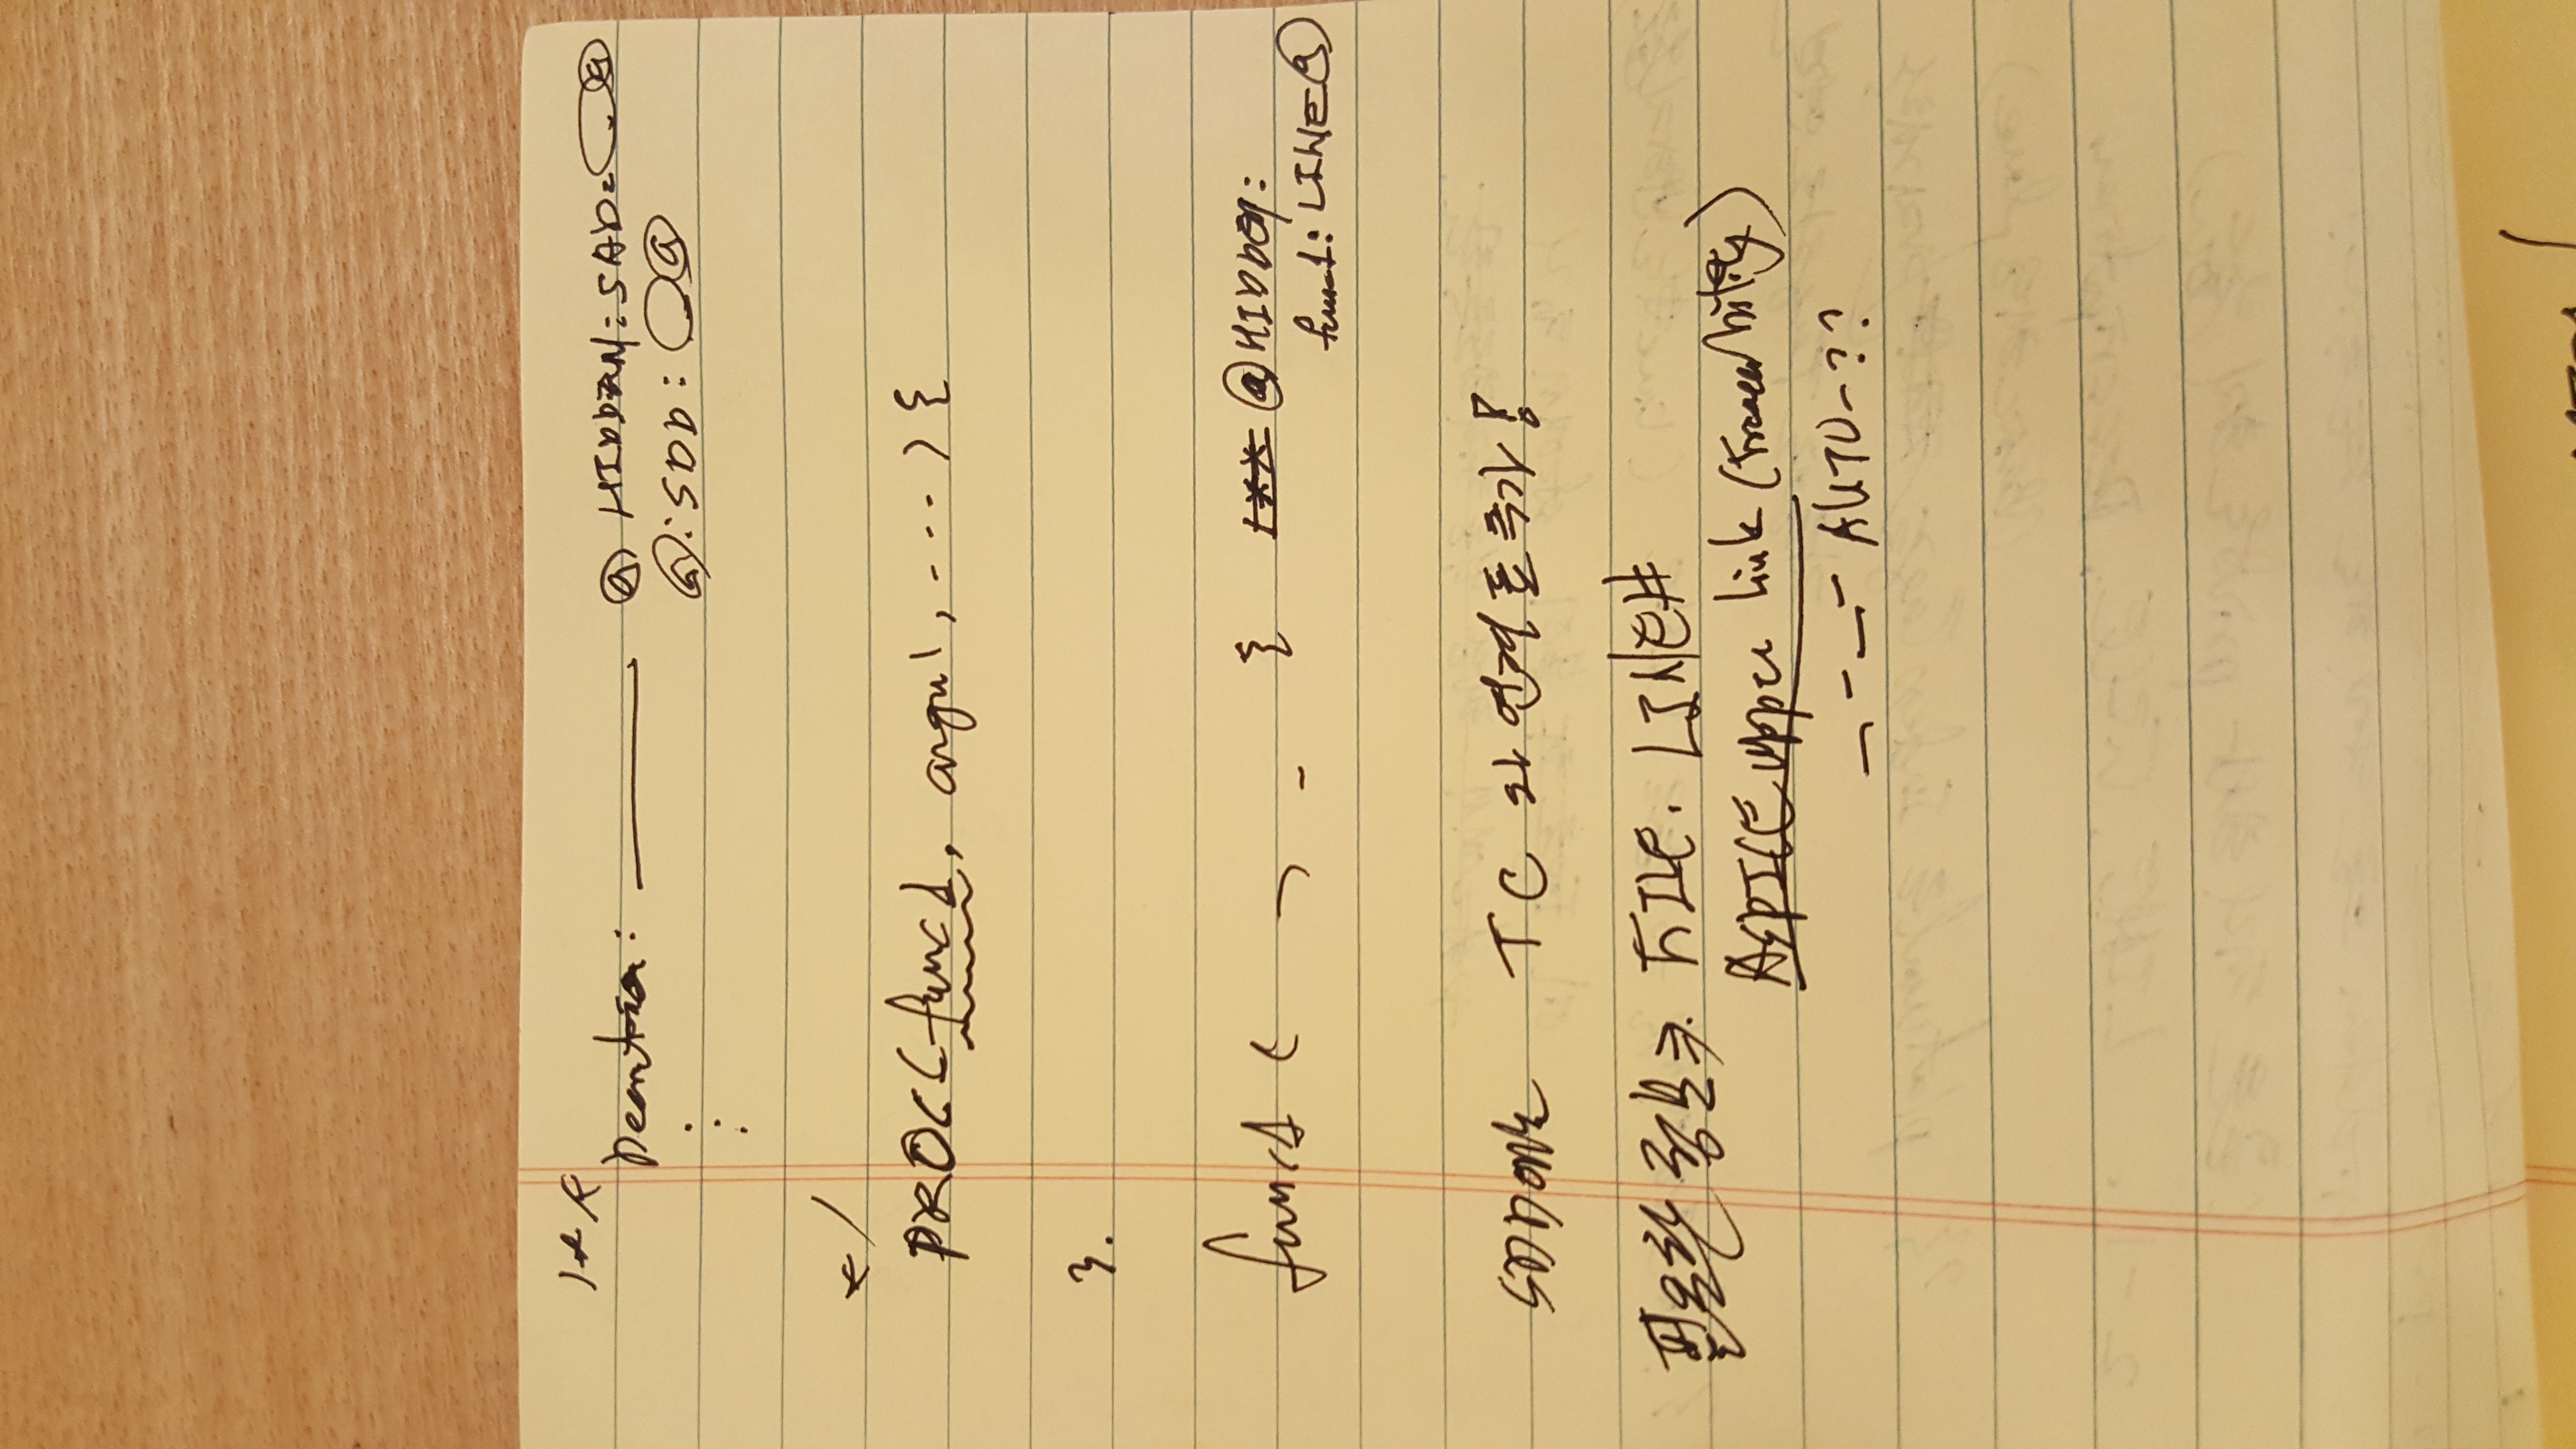 /**
@ HIDDEN: SAD: @
: @: SDD: @
:
*/
PROC(func1, argu1, ---) {
}.
func1 ( {
@HIDDEN:
func1: LINE@
SDD에는 TC 와 연결도 추가!
필요한 정보는 FILE. LINE#
ASPICE upper link (traceability)
AUTO-??